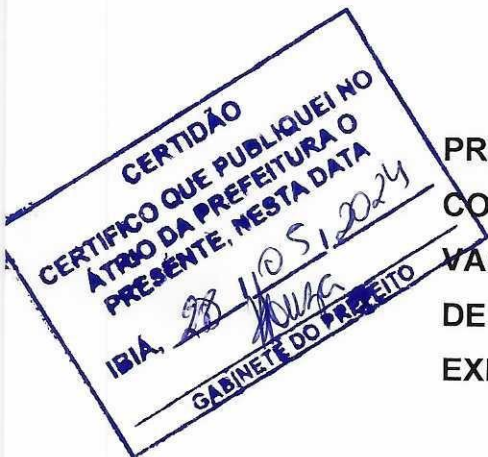 CERTIDÃO
CERTIFICO QUE PUBLIQUEI NO
ÁTRIO DA PREFEITURA O
PRESENTE, NESTA DATA
IBIÁ, 28 / 05 / 2024
GABINETE DO PREFEITO
PR
CO
VA
DE
EXI